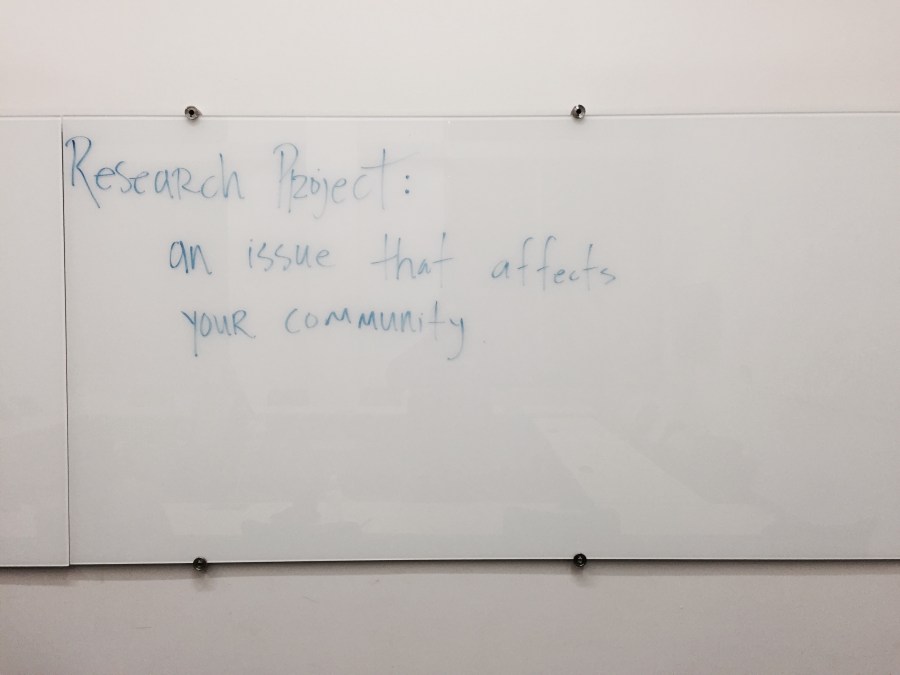 Research Project:
an issue that affects
your community.